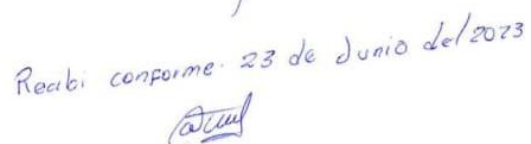 Recibi conforme. 23 de Junio del 2023